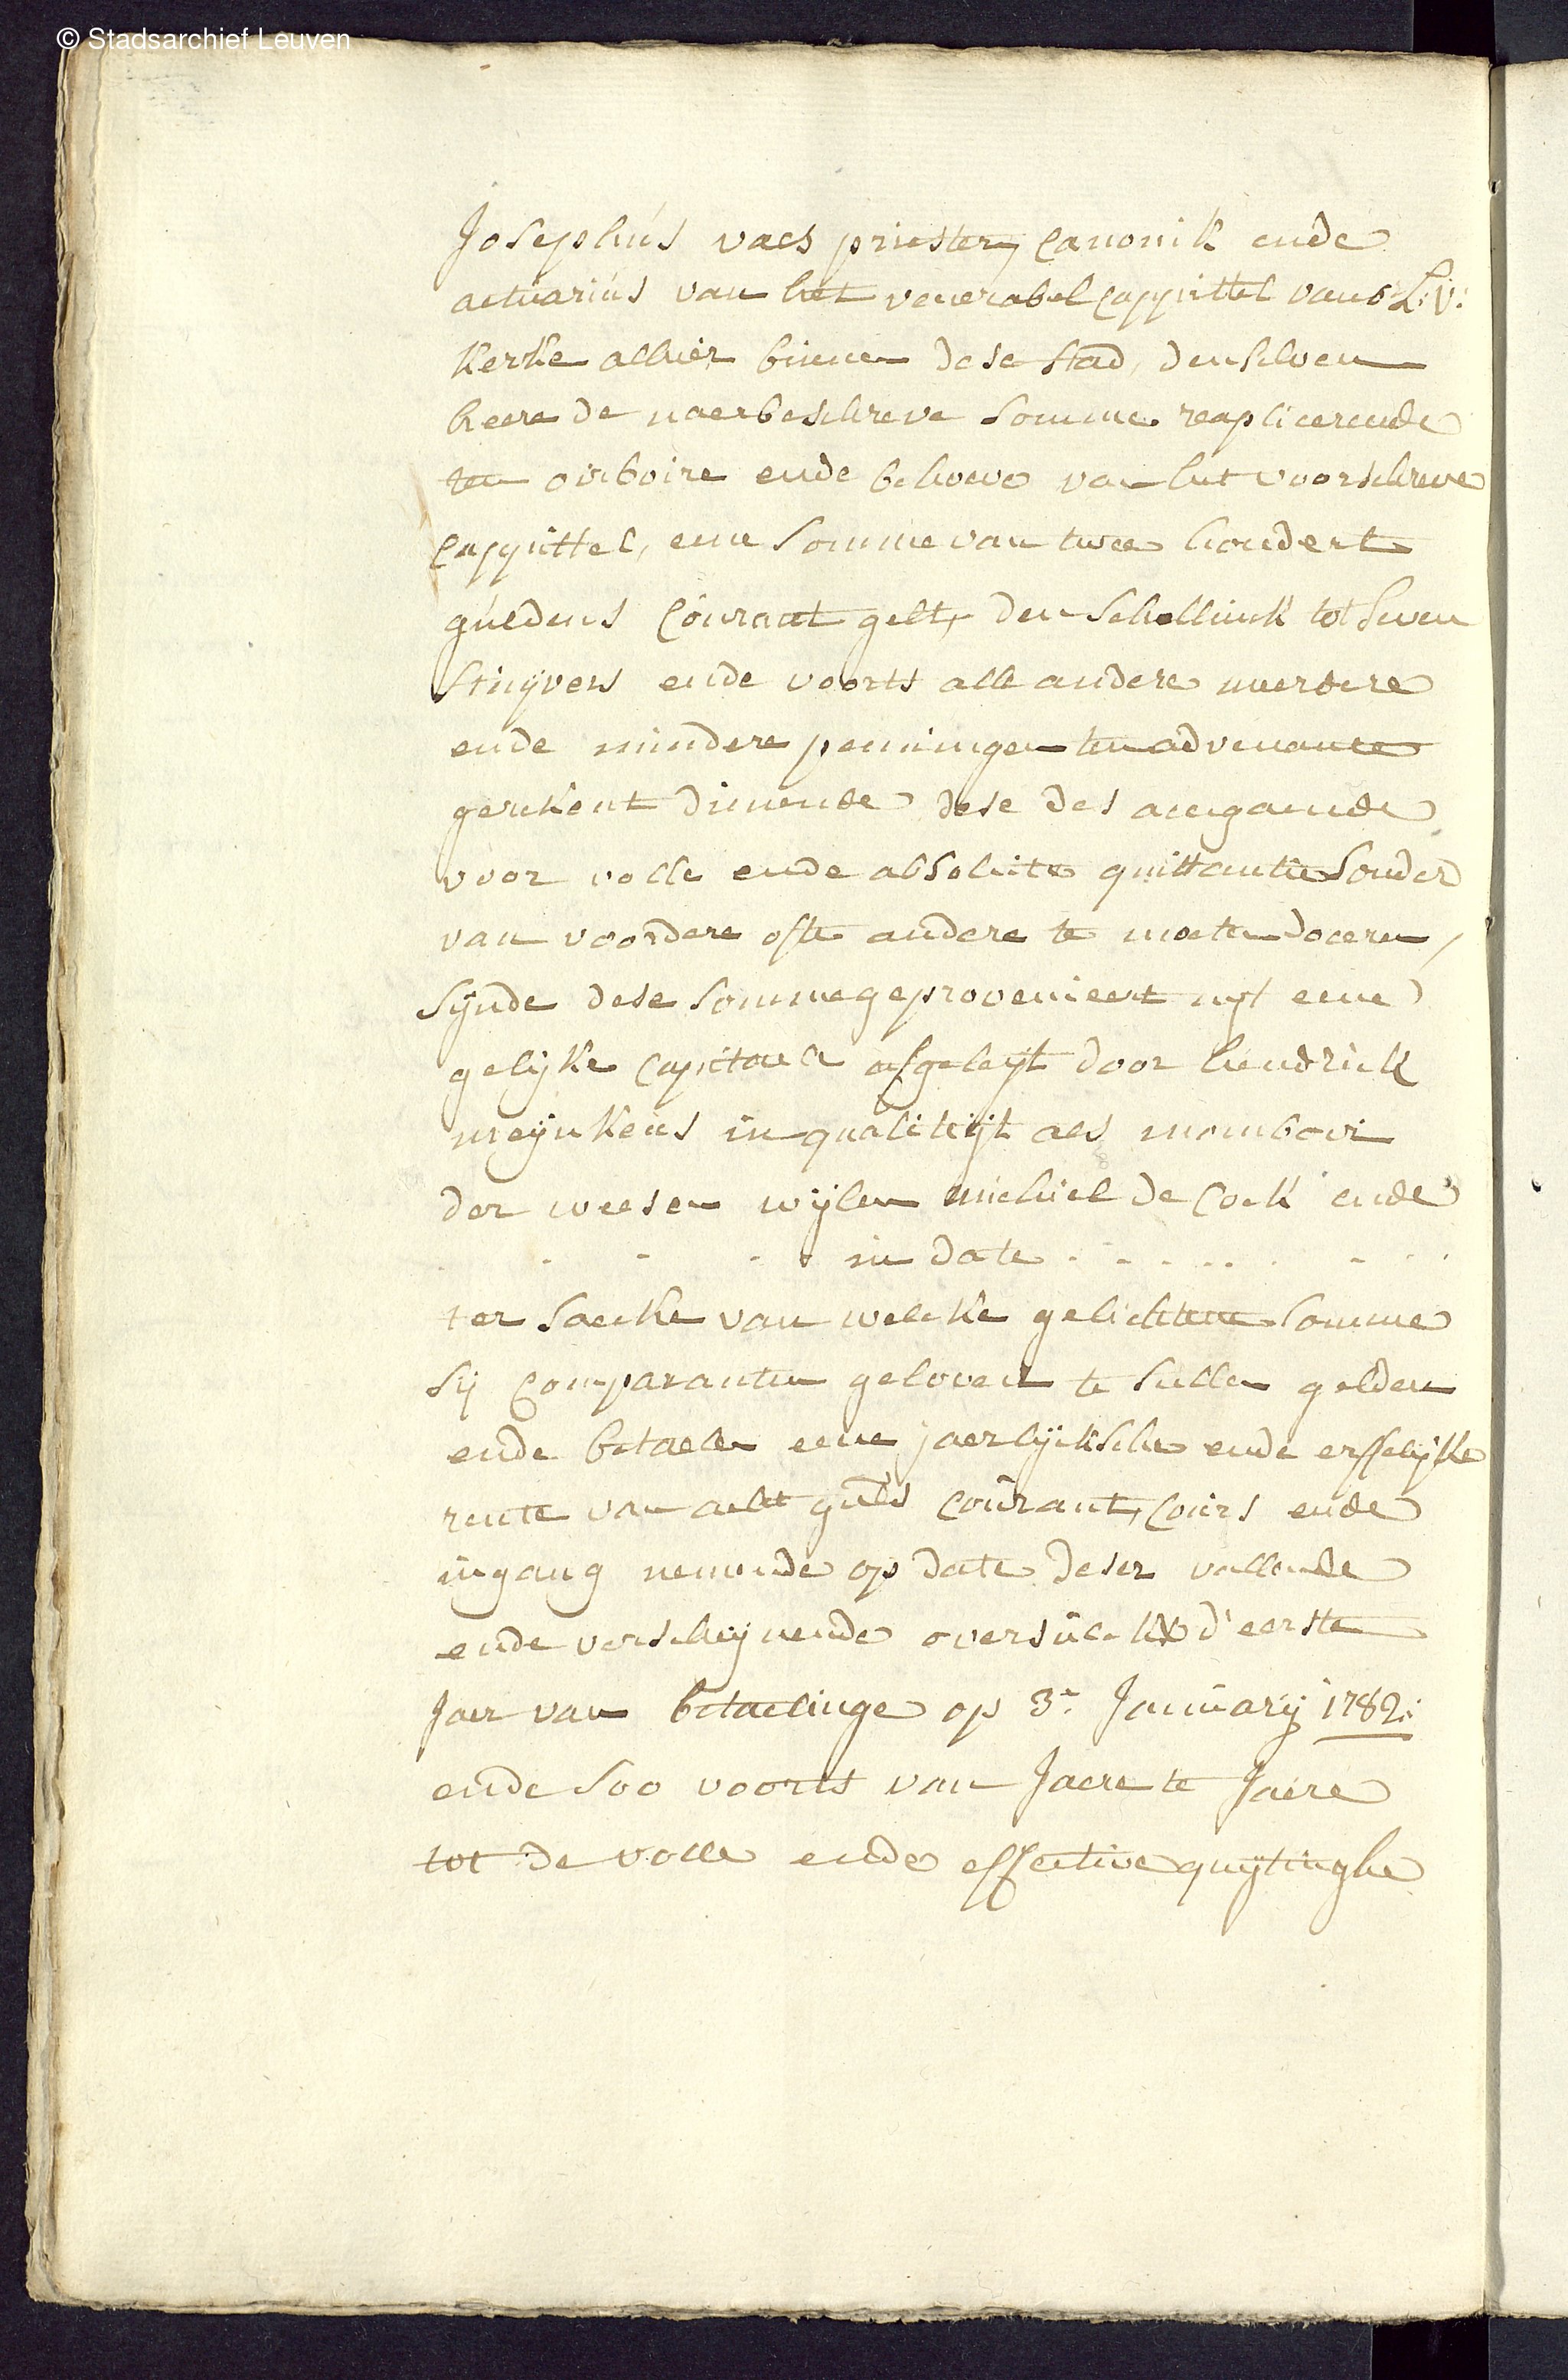 © Stadsarchief Leuven
Josephús vaes priester, Canonik ende
actúariús van het venerabel Cappittel van O: L: V:
kerke alhier binnen dese stad, denselven
heere de naerbeschreve somme reapliceerende
ten oirboire ende behoeve van het voorschreve
Cappittel, eene somme van twee hondert
gúldens Coúrant gelt, den schellinck tot seven
stuÿvers ende voorts alle andere meerdere
ende mindere penningen ten advenante
gerekent dienende dese des aengaende
voor volle ende absolúte quittantie sonder
van voordere ofte andere te moeten doceren,
sÿnde dese somme geprovenieert uÿt eene
gelijke Capitael afgeleÿt door hendrick
meÿnkens in qualiteÿt als momboir
der weesen wijlen michiel de Cock ende
. - - . . in date . - - . . . . - . .
ter saecke van welcke gelichtene somme
sij Comparanten geloven te sullen gelden
ende betaelen eene jaerlÿcksche ende erffelijke
rente van acht gúls Coúrant, Coúrs ende
ingang nemende op date deser vallende
ende verschijnende oversúlckx d'eerste
Jaer van betaelinge op 3e Januarij 1782:
ende soo voorts van Jaere te Jaere
tot de volle ende effective quÿtinghe